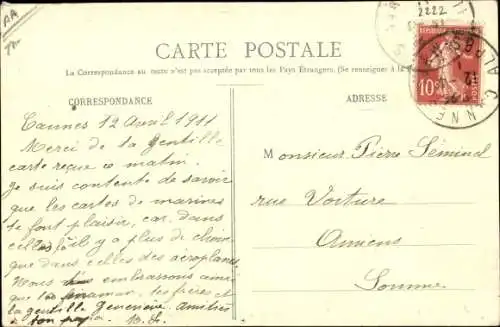 AA
2222
CARTE POSTALE
La Correspondance au recto n'est pas acceptée par tous les Pays Étrangers. (Se renseigner à la
CORRESPONDANCE
ADRESSE
REPUBLIQUE
10
POSTES
CANNES
ALPES
12
Cannes 12 Avril 1911
Merci de la gentille
carte reçue ce matin.
Je suis contente de savoir
que les cartes de marines
te font plaisir, car dans
celles là il y a plus de choix
que dans celles des aéroplanes
Nous embrassons ainsi
que ta maman, tes frères et
la gentille Geneviève amitiés
à ton papa
Monsieur Pierre Séminel
rue Voiture
Amiens
Somme